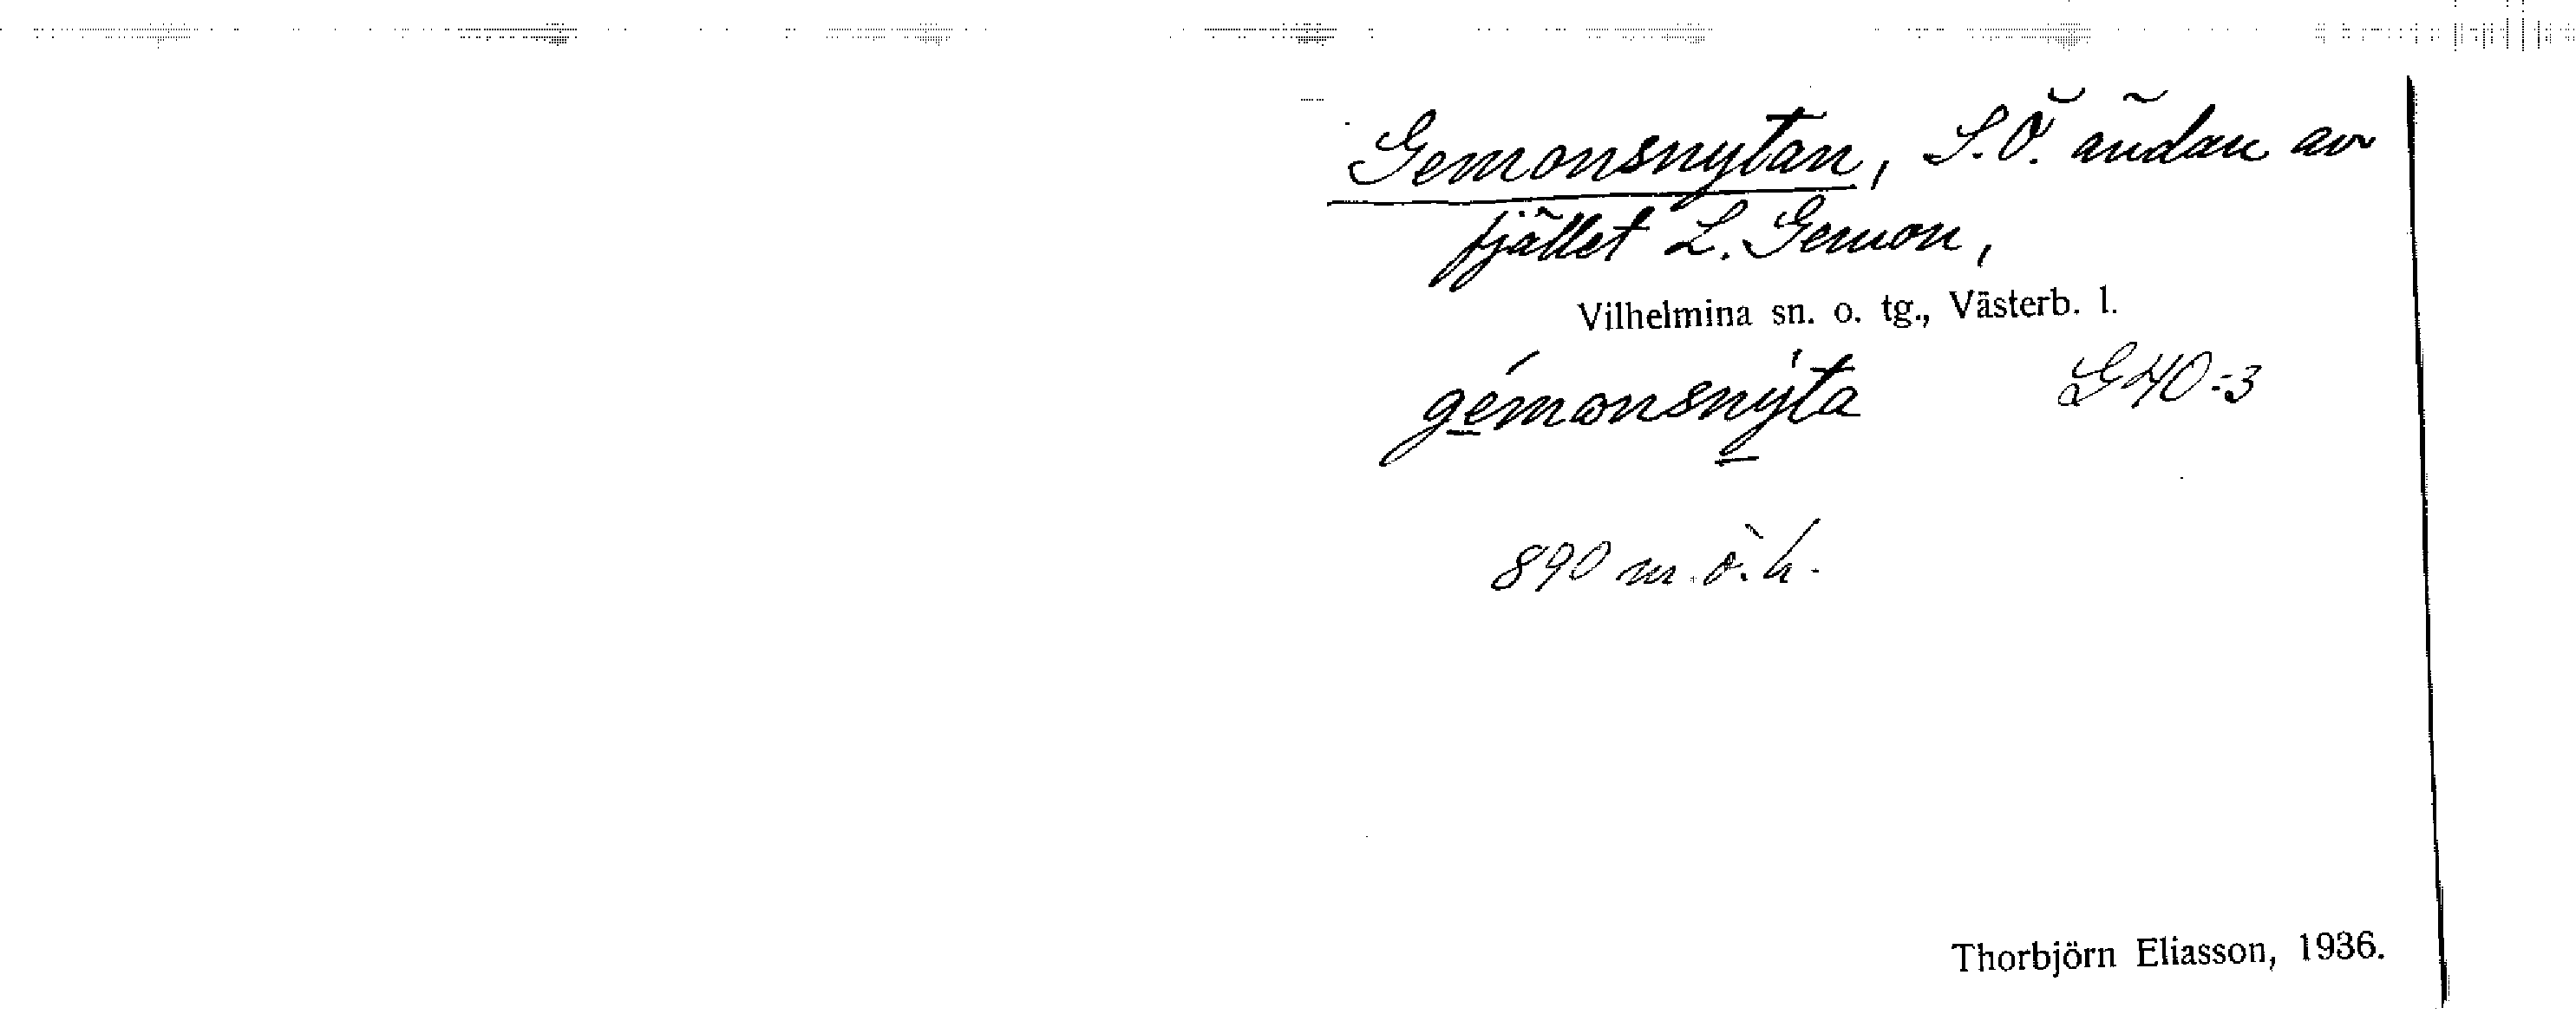 Gemonsnytan, S.Ö. ändan av
fjället L. Gemon,
Vilhelmina sn. o. tg., Västerb. l.
gémonsnýta G40:3
890 m.ö.h.
Thorbjörn Eliasson, 1936.